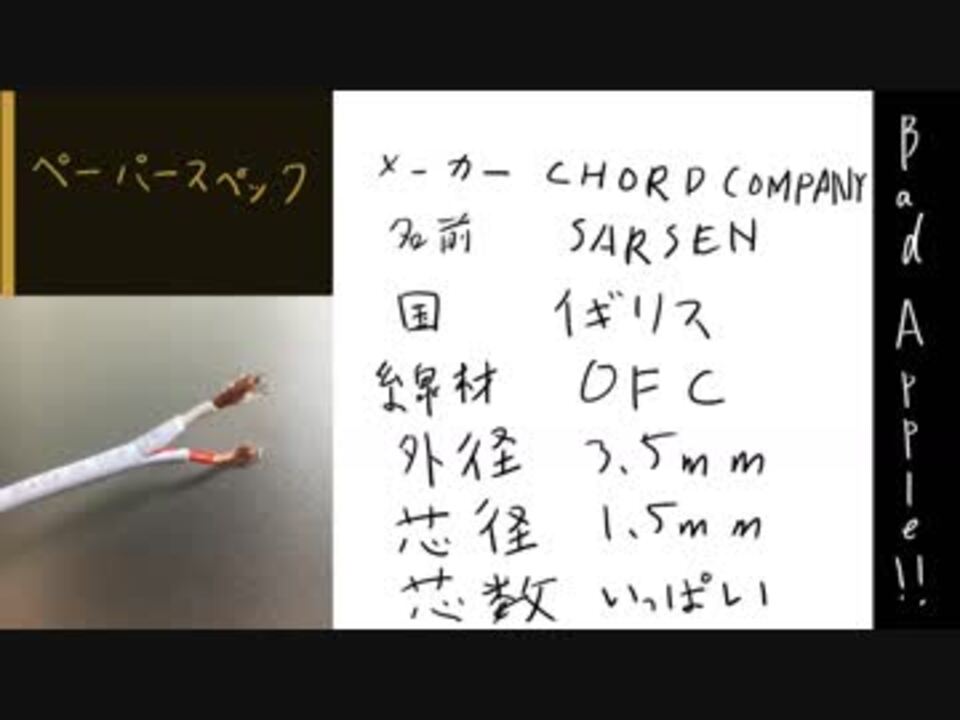 ペーパースペック
メーカー CHORD COMPANY
名前 SARSEN
国 イギリス
線材 OFC
外径 3.5mm
芯径 1.5mm
芯数 いっぱい
Bad Apple!!